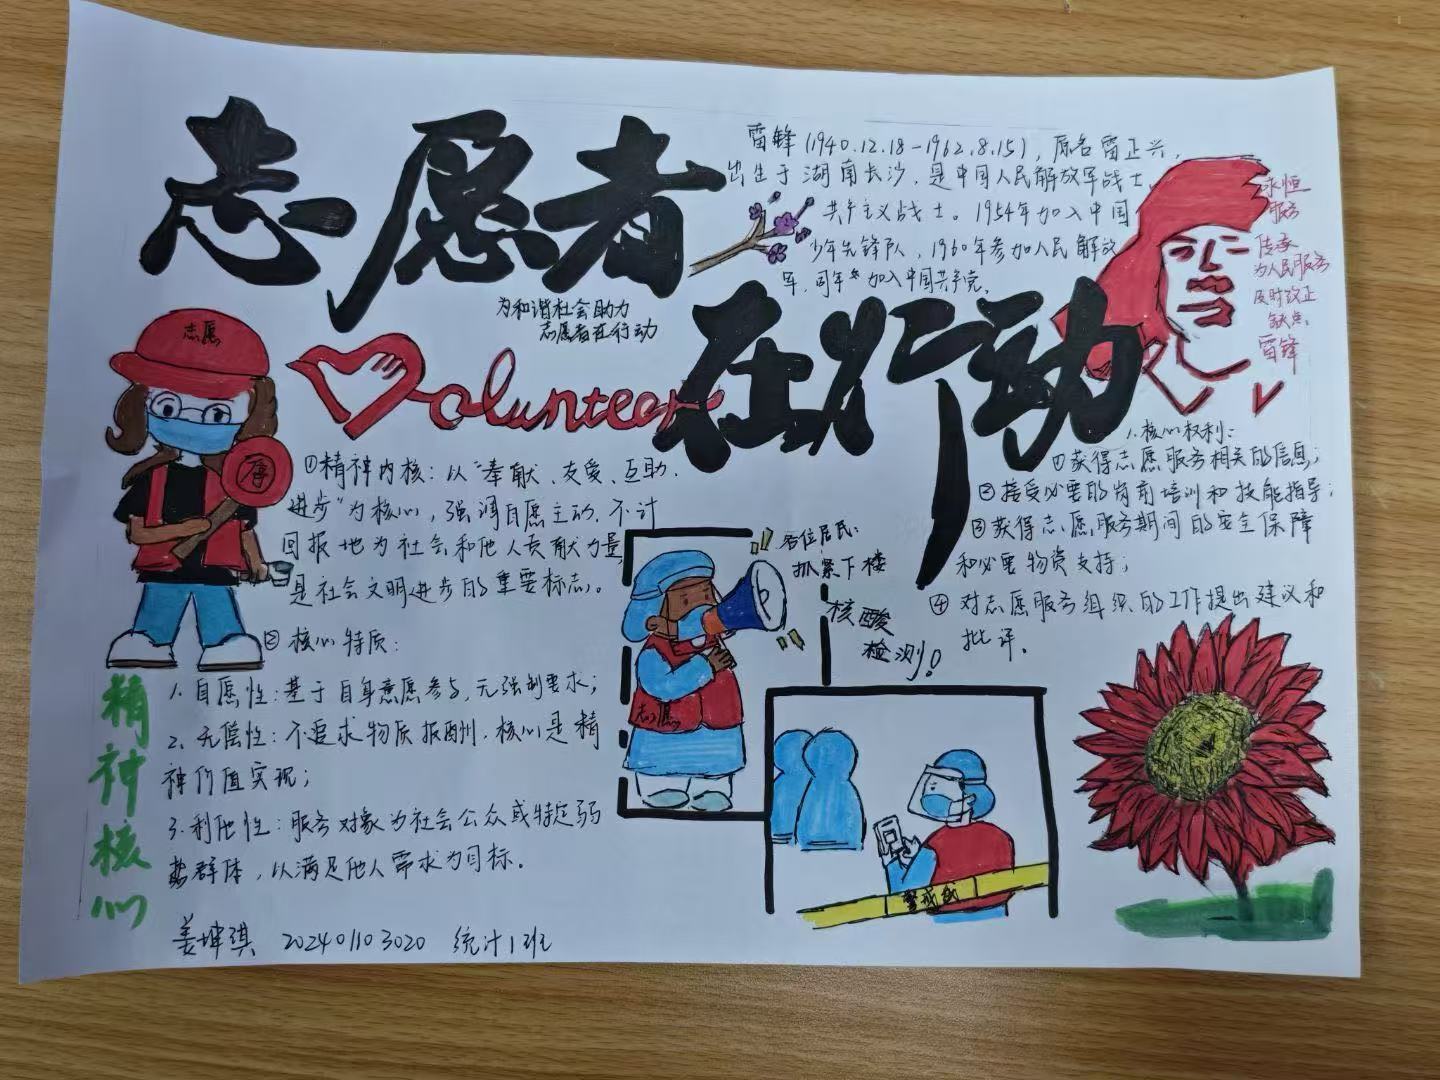 志愿者
在行动
雷锋(1940.12.18-1962.8.15)，原名雷正兴，
出生于湖南长沙，是中国人民解放军战士、
共产主义战士。1954年加入中国
少年先锋队，1960年参加人民解放
军，同年加入中国共产党。
永恒
服务
传承
为人民服务
及时改正
缺点
雷锋
为和谐社会助力
志愿者在行动
Volunteer
志愿
①精神内核：以“奉献、友爱、互助、
进步”为核心，强调自愿主动、不计
回报地为社会和他人贡献力量，
是社会文明进步的重要标志。
②核心特质：
1.自愿性：基于自身意愿参与，无强制要求；
2.无偿性：不追求物质报酬，核心是精
神价值实现；
3.利他性：服务对象为社会公众或特定弱
势群体，以满足他人需求为目标。
精神核心
各位居民：
抓紧下楼
核酸
检测！
志愿
警戒线
1.核心权利：
①获得志愿服务相关的信息；
②接受必要的岗前培训和技能指导；
③获得志愿服务期间的安全保障
和必要物资支持；
④对志愿服务组织的工作提出建议和
批评。
姜坤琪 20240110 3020 统计1班